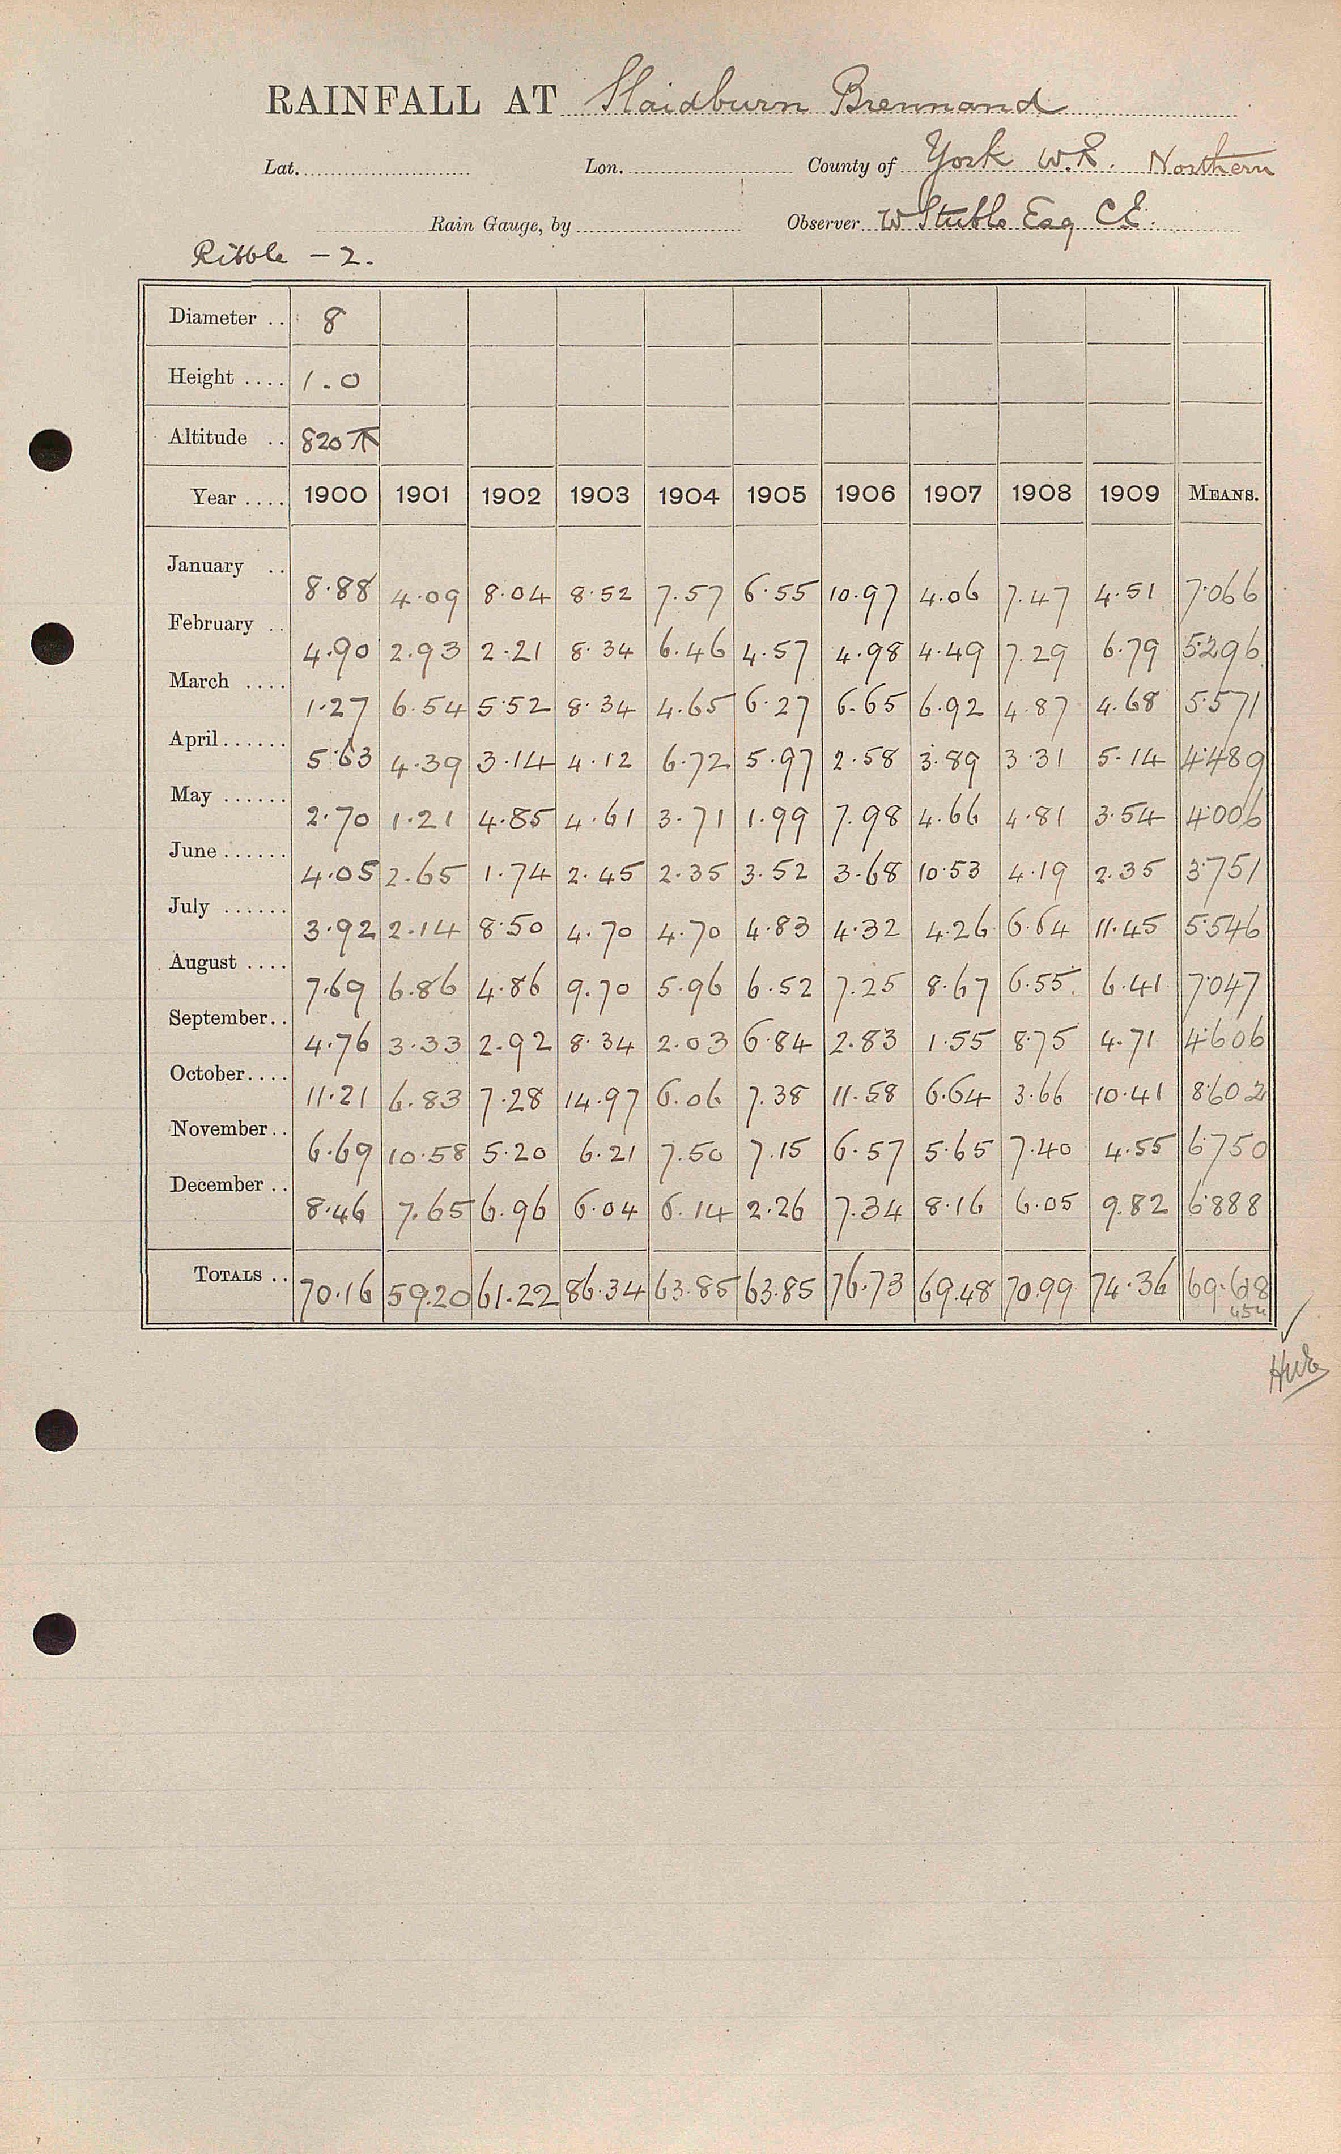 RAINFALL AT Slaidburn Brennand
Lat. Lon. County of York W.R. Northern
Rain Gauge, by Observer W Stubbs Esq C.E.
Ribble - 2.
Diameter .. 8
Height .... 1.0
Altitude .. 820 T
Year .... 1900 1901 1902 1903 1904 1905 1906 1907 1908 1909 MEANS.
January .. 8.88 4.09 8.04 8.52 7.57 6.55 10.97 4.06 7.47 4.51 7.066
February .. 4.90 2.93 2.21 8.34 6.46 4.57 4.98 4.49 7.29 6.79 5.296
March .... 1.27 6.54 5.52 8.34 4.65 6.27 6.65 6.92 4.87 4.68 5.571
April...... 5.63 4.39 3.14 4.12 6.72 5.97 2.58 3.89 3.31 5.14 4.489
May ...... 2.70 1.21 4.85 4.61 3.71 1.99 7.98 4.66 4.81 3.54 4.006
June ...... 4.05 2.65 1.74 2.45 2.35 3.52 3.68 10.53 4.19 2.35 3.751
July ...... 3.92 2.14 8.50 4.70 4.70 4.83 4.32 4.26 6.64 11.45 5.546
August .... 7.69 6.86 4.86 9.70 5.96 6.52 7.25 8.67 6.55 6.41 7.047
September.. 4.76 3.33 2.92 8.34 2.03 6.84 2.83 1.55 8.75 4.71 4.606
October.... 11.21 6.83 7.28 14.97 6.06 7.38 11.58 6.64 3.66 10.41 8.602
November.. 6.69 10.58 5.20 6.21 7.50 7.15 6.57 5.65 7.40 4.55 6.750
December .. 8.46 7.65 6.96 6.04 6.14 2.26 7.34 8.16 6.05 9.82 6.888
TOTALS .. 70.16 59.20 61.22 86.34 63.85 63.85 76.73 69.48 70.99 74.36 69.618